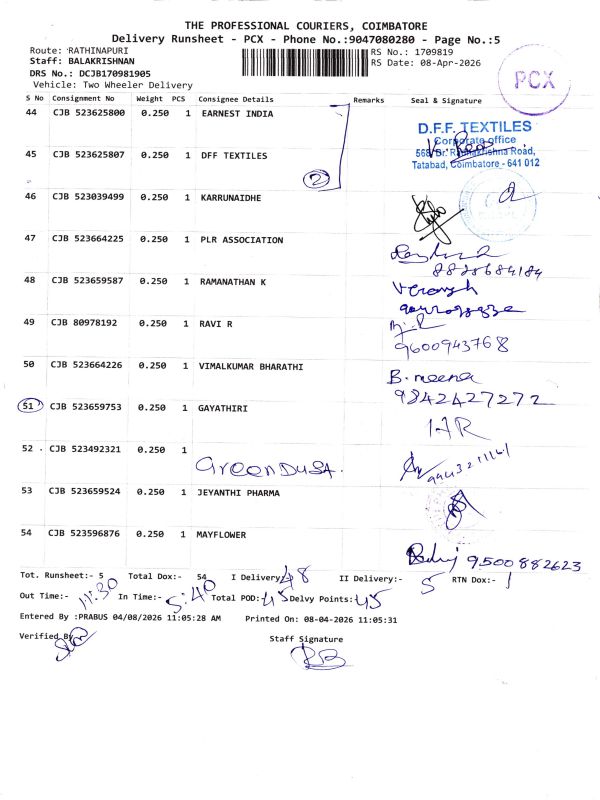 THE PROFESSIONAL COURIERS, COIMBATORE
Delivery Runsheet - PCX - Phone No.:9047080280 - Page No.:5
Route: RATHINAPURI
RS No.: 1709819
Staff: BALAKRISHNAN
RS Date: 08-Apr-2026
DRS No.: DCJB170981905
Vehicle: Two Wheeler Delivery
PCX
S No Consignment No Weight PCS Consignee Details Remarks Seal & Signature
44 CJB 523625800 0.250 1 EARNEST INDIA
D.F.F. TEXTILES
Corporate office
45 CJB 523625807 0.250 1 DFF TEXTILES
Road,
Tatabad, Coimbatore - 641 012
2
46 CJB 523039499 0.250 1 KARRUNAIDHE
47 CJB 523664225 0.250 1 PLR ASSOCIATION
48 CJB 523659587 0.250 1 RAMANATHAN K
49 CJB 80978192 0.250 1 RAVI R
9600943768
50 CJB 523664226 0.250 1 VIMALKUMAR BHARATHI
B. meena
9842427272
51 CJB 523659753 0.250 1 GAYATHIRI
52 . CJB 523492321 0.250 1
53 CJB 523659524 0.250 1 JEYANTHI PHARMA
54 CJB 523596876 0.250 1 MAYFLOWER
9500882623
Tot. Runsheet:- 5 Total Dox:- 54 I Delivery:- 48 II Delivery:- 5 RTN Dox:- 1
Out Time:- 11:30 In Time:- 5:40 Total POD:- 45 Delvy Points:- 45
Entered By :PRABUS 04/08/2026 11:05:28 AM Printed On: 08-04-2026 11:05:31
Verified By
Staff Signature